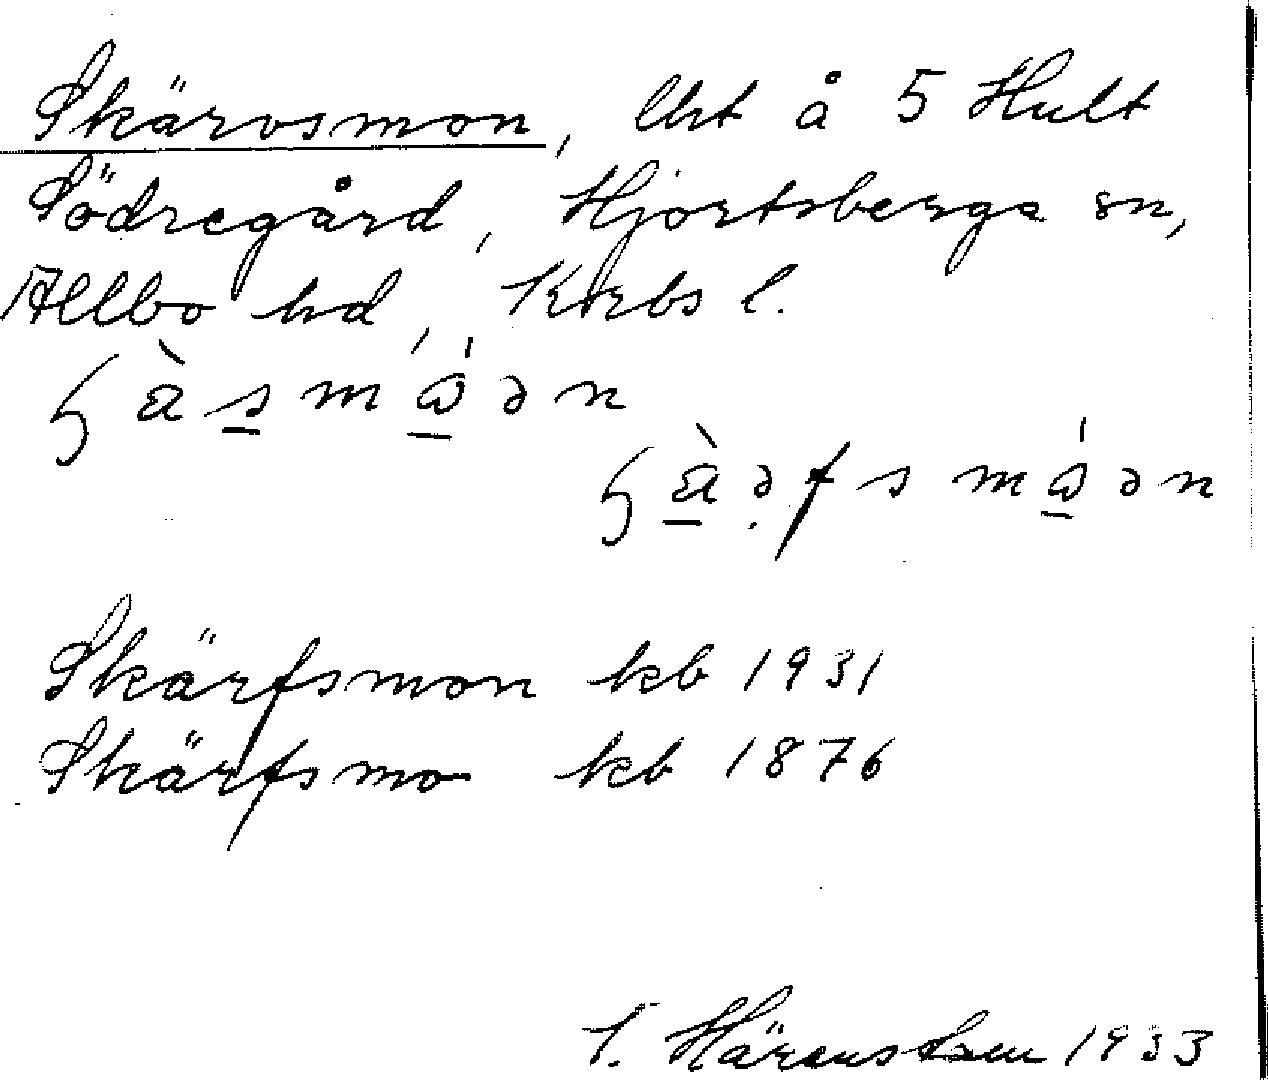 Skärvsmon, lht å 5 Hult
Södregård, Hjortsberga sn,
Allbo hd, Krbs l.
Skärfsmon kb 1931
Skärfsmo kb 1876
1933